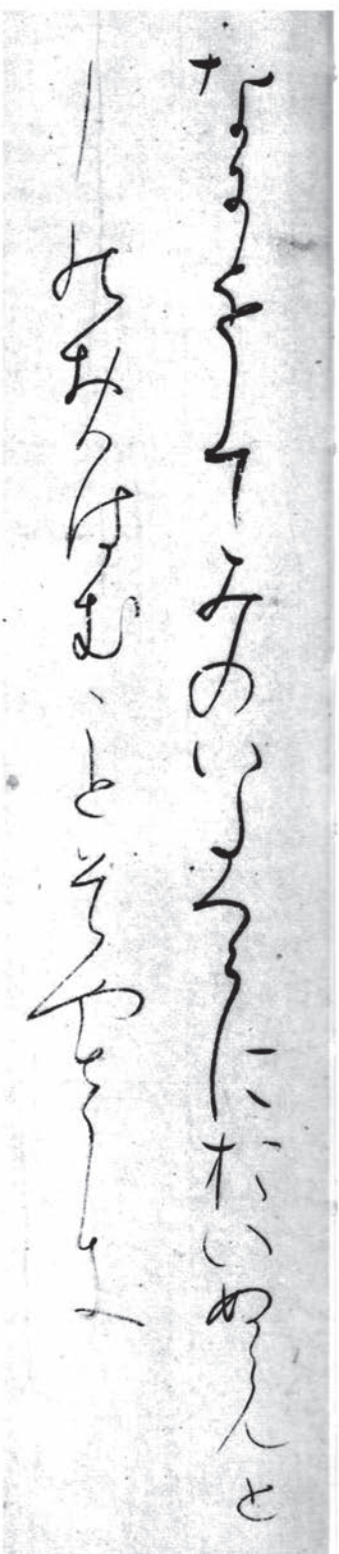 なにをしてみのいたつらにおいぬらんと
しのおもはむことそやさしき